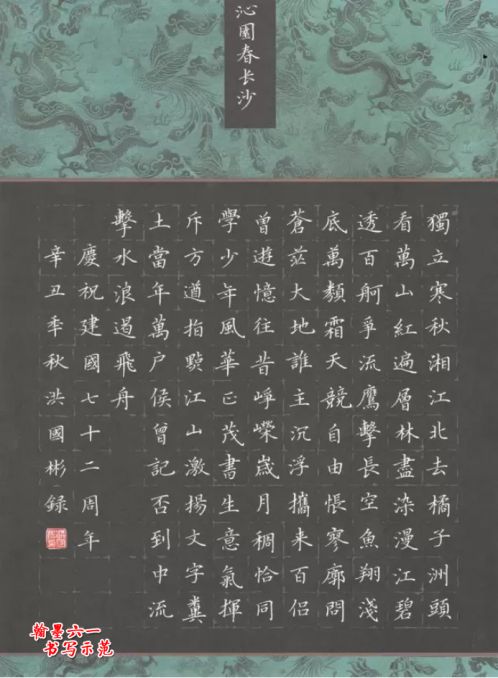 沁園春长沙
獨立寒秋湘江北去橘子洲頭
看萬山紅遍層林盡染漫江碧
透百舸爭流鷹擊長空魚翔淺
底萬類霜天競自由悵寥廓問
蒼茫大地誰主沉浮攜來百侶
曾遊憶往昔崢嶸歲月稠恰同
學少年風華正茂書生意氣揮
斥方遒指點江山激揚文字糞
土當年萬户侯曾記否到中流
擊水浪遏飛舟
慶祝建國七十二周年
辛丑季秋洪國彬録
翰墨六一
书写示范